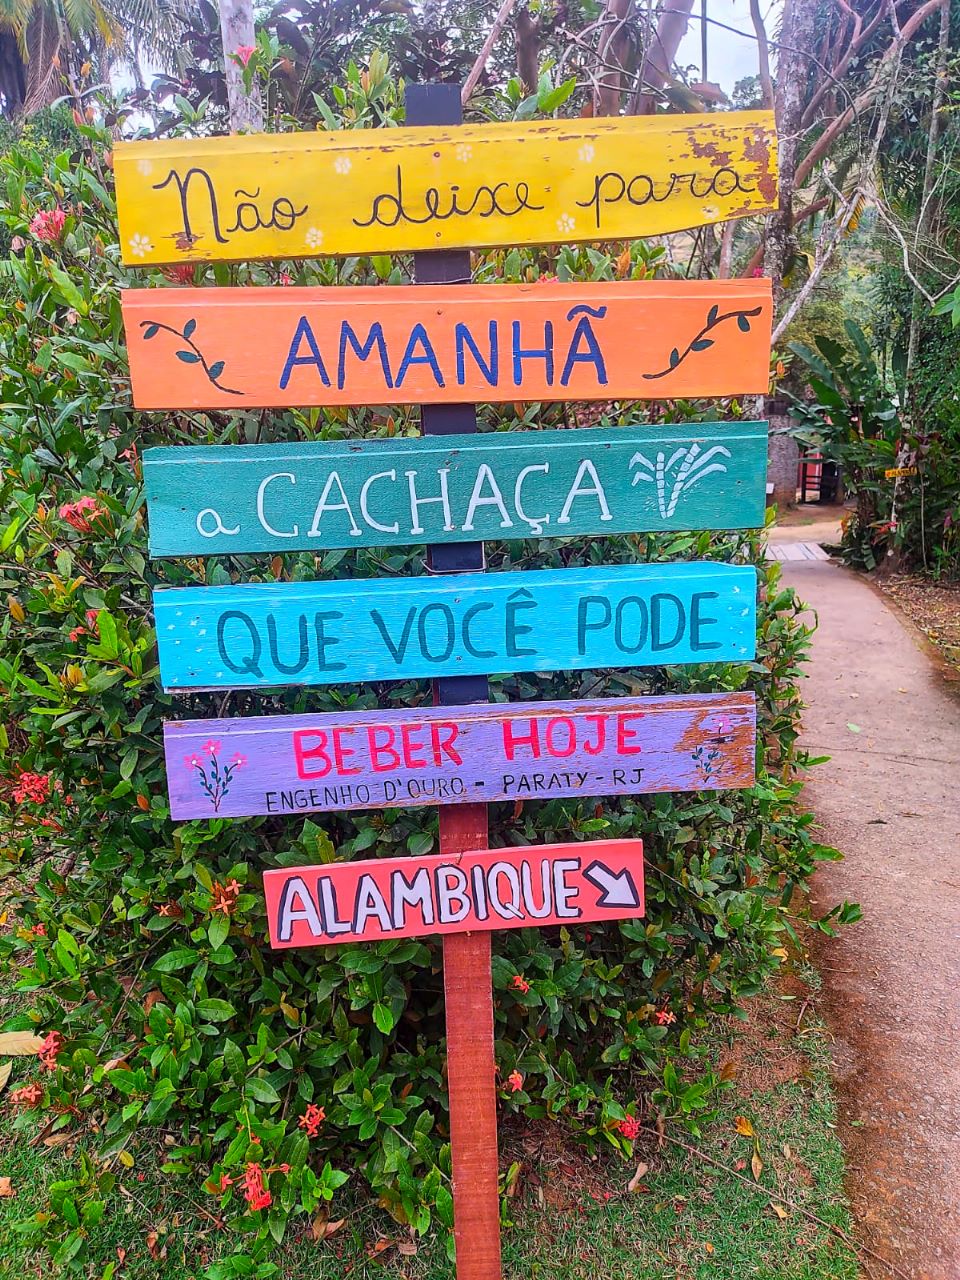 Não deixe para
AMANHÃ
a CACHAÇA
QUE VOCÊ PODE
BEBER HOJE
ENGENHO D'OURO - PARATY - RJ
ALAMBIQUE